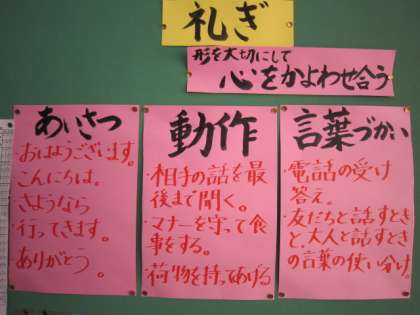 礼ぎ
形を大切にして
心をかよわせ合う
あいさつ
おはようございます。
こんにちは。
さようなら
行ってきます。
ありがとう。
動作
・相手の話を最
後まで聞く。
・マナーを守って食
事をする。
・荷物を持ってあげる
言葉づかい
・電話の受け
答え。
・友だちと話すとき
と、大人と話すとき
の言葉の使い分け。